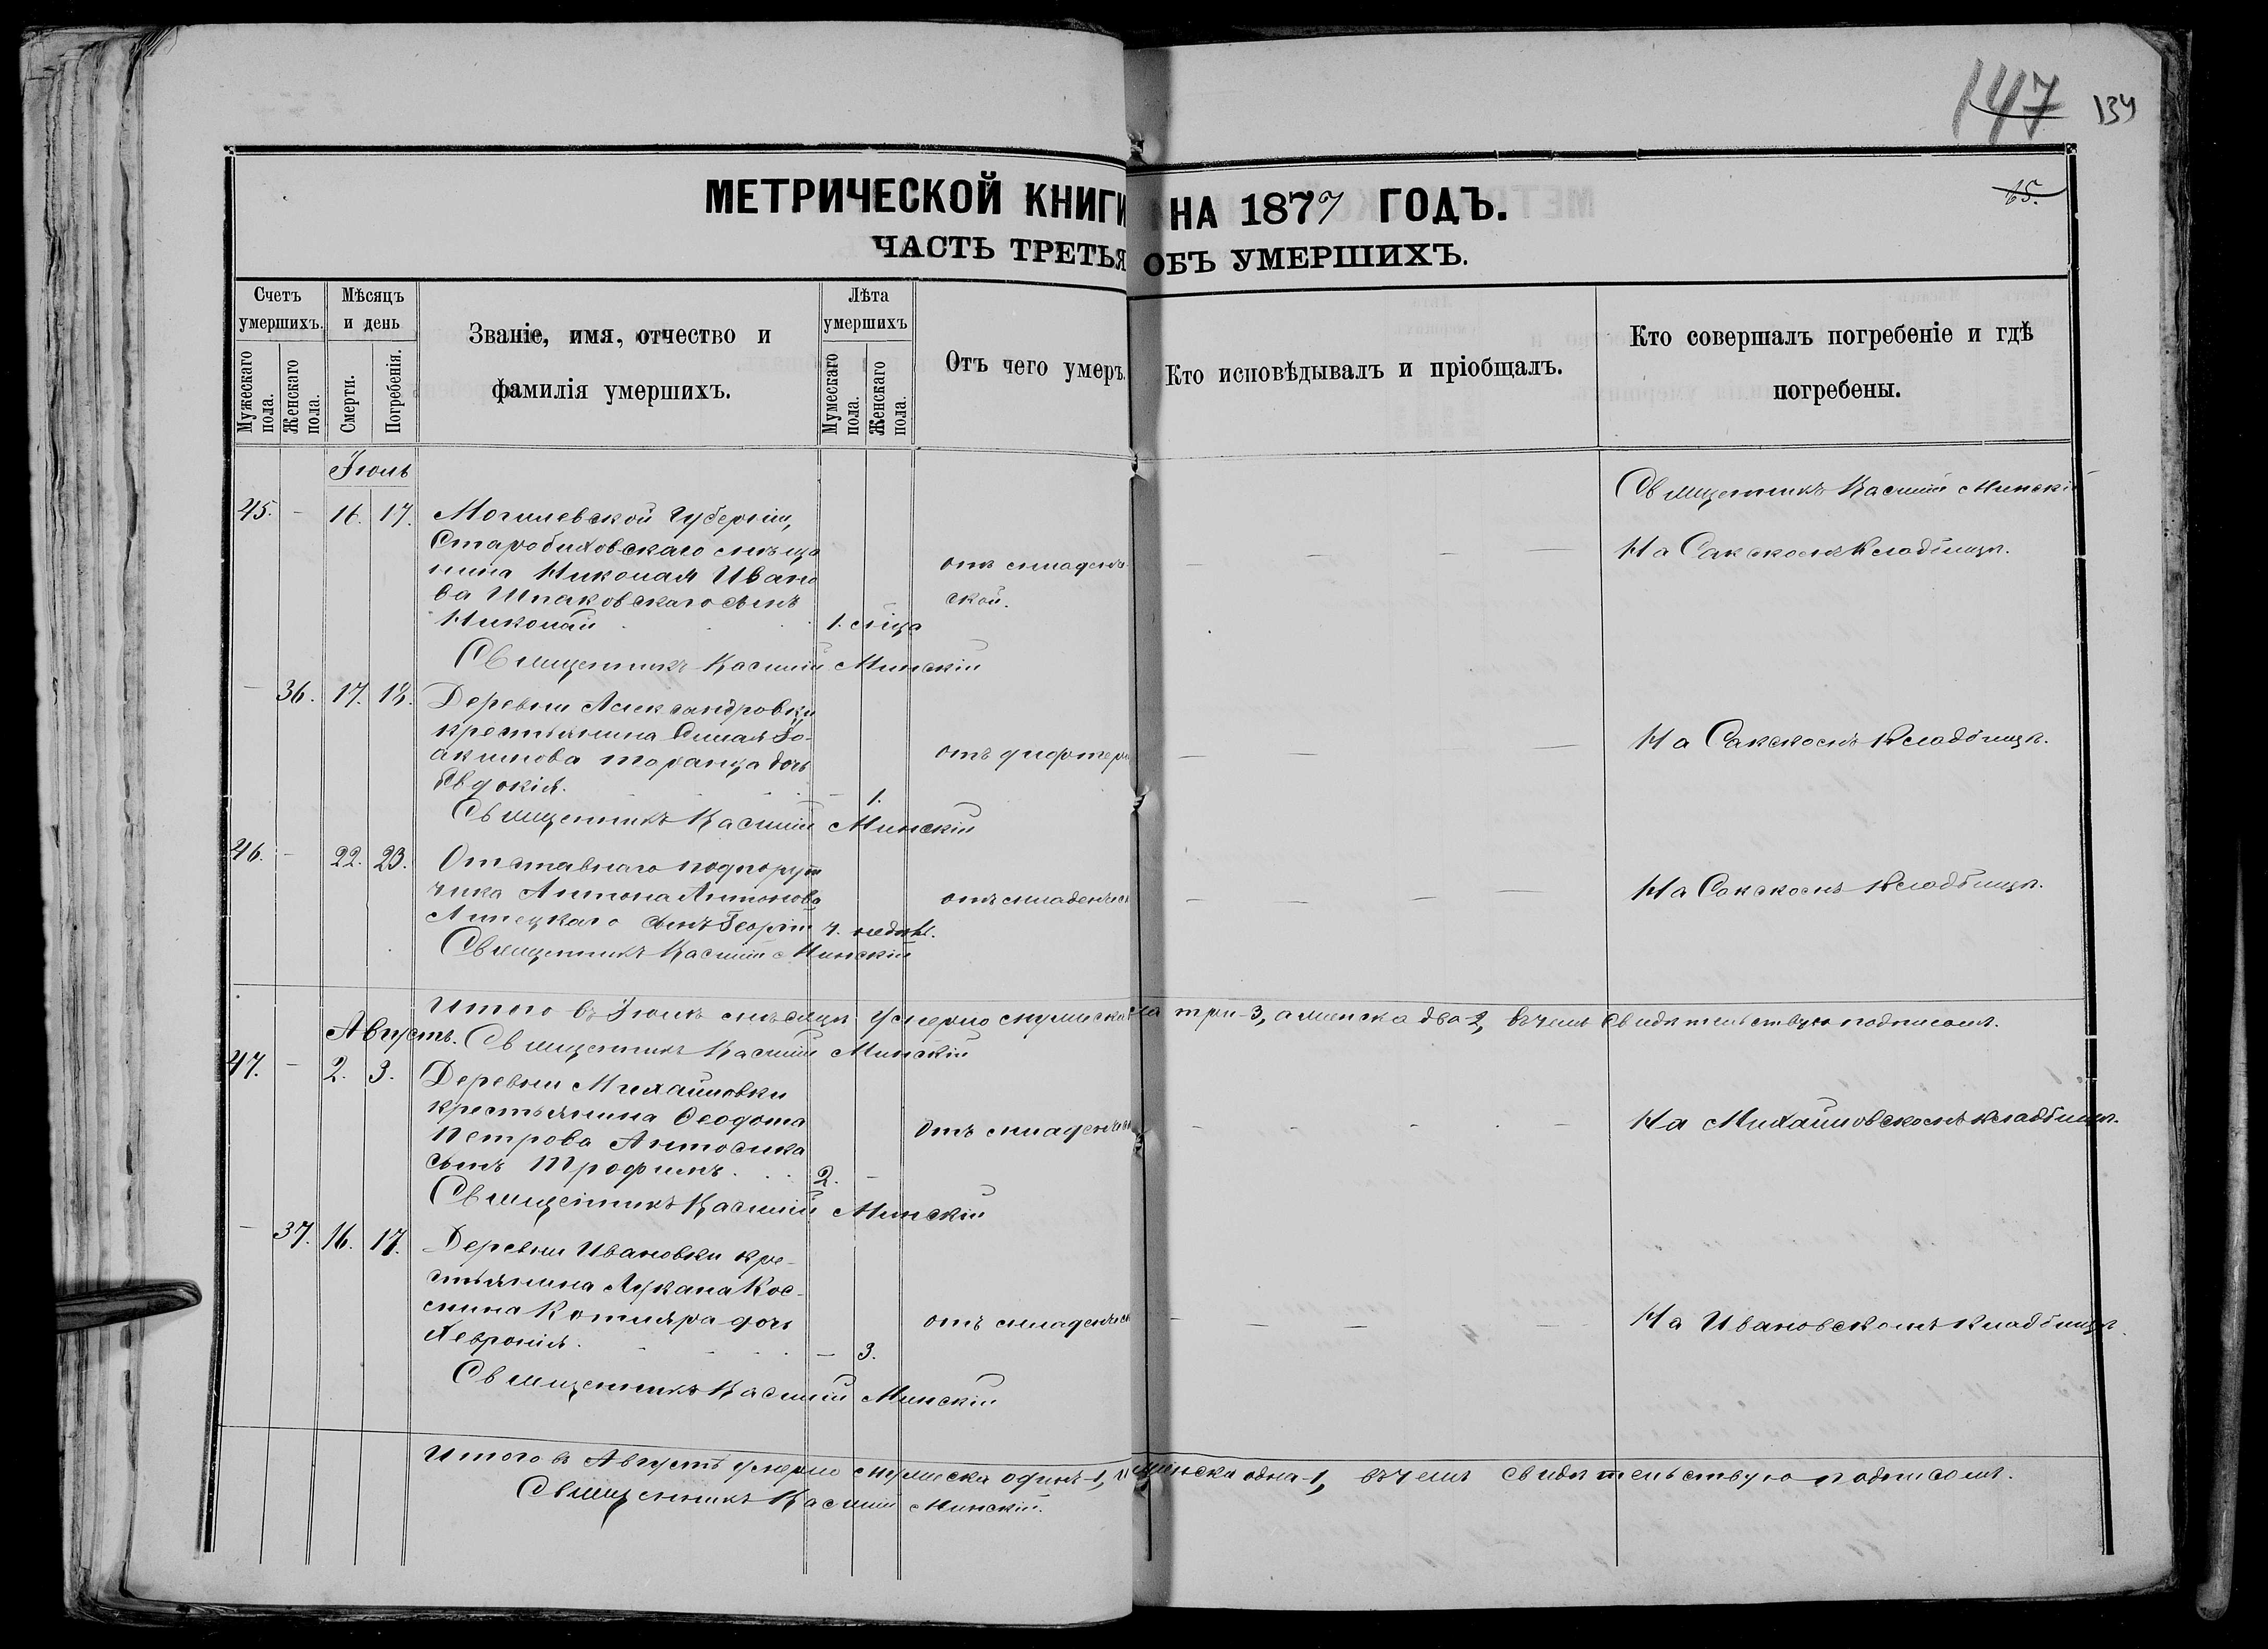 147 134
65.
МЕТРИЧЕСКОЙ КНИГИ НА 1877 ГОДЪ.
ЧАСТЬ ТРЕТЬЯ ОБЪ УМЕРШИХЪ.
Счетъ умершихъ.
Мужескаго пола.
Женскаго пола.
Мѣсяцъ и день
Смерти.
Погребенія.
Званіе, имя, отчество и
фамилія умершихъ.
Лѣта умершихъ
Мужескаго пола.
Женскаго пола.
Отъ чего умеръ.
Кто исповѣдывалъ и пріобщалъ.
Кто совершалъ погребеніе и гдѣ
погребены.
Іюль
45. – 16. 17. Могилевской Губерніи,
Старобыховскаго мѣща
нина Николая Ивано
ва Шпаковскаго сынъ
Николай 1. мца
отъ младенч
ской.
Священникъ Касіан Минскі
На Сакскомъ Кладбищѣ.
Священникъ Касіан Минскій
– 36. 17. 18. Деревни Александровки
крестьянина Іо-
акимова дочь
Евдокія. – 1.
отъ дифтери
На Сакскомъ Кладбищѣ.
Священникъ Касіан Минскій
46. – 22. 23. Отставнаго подпору
чика Антона Антонова
Липецкаго сынъ Георгій 4. недѣл.
отъ младенческ
На Сакскомъ Кладбищѣ.
Священникъ Касіан Минскій
Итого въ Іюлѣ мѣсяцѣ умерло мужеска пола три-3, а женска два-2, въ чемъ свидѣтельствую подписомъ.
Августъ. Священникъ Касіан Минскій
47. – 2. 3. Деревни Михайловки
крестьянина Ѳеодота
Петрова
сынъ Трофимъ. 2. –
Отъ младенческ
На Михайловскомъ кладбищѣ.
Священникъ Касіан Минскій
– 37. 16. 17. Деревни Ивановки кре-
стьянина Лукана Кос-
мина Котляра дочь
Хевронія. – 3.
отъ младенческ
На Ивановскомъ кладбищѣ
Священникъ Касіан Минскій
Итого въ Августѣ умерло мужеска одинъ-1, и женска одна-1, въ чемъ свидѣтельствую подписомъ.
Священникъ Касіан Минскій.